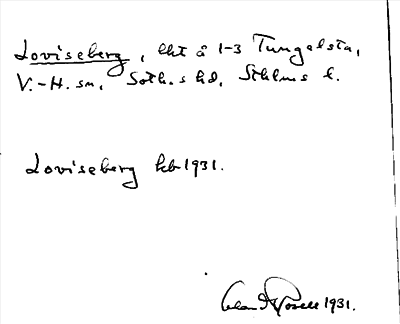 Loviseberg, lht å 1-3 Tungelsta,
V.-H. sn, Soth.s hd, Sthlms l.
Loviseberg hb 1931.
1931.